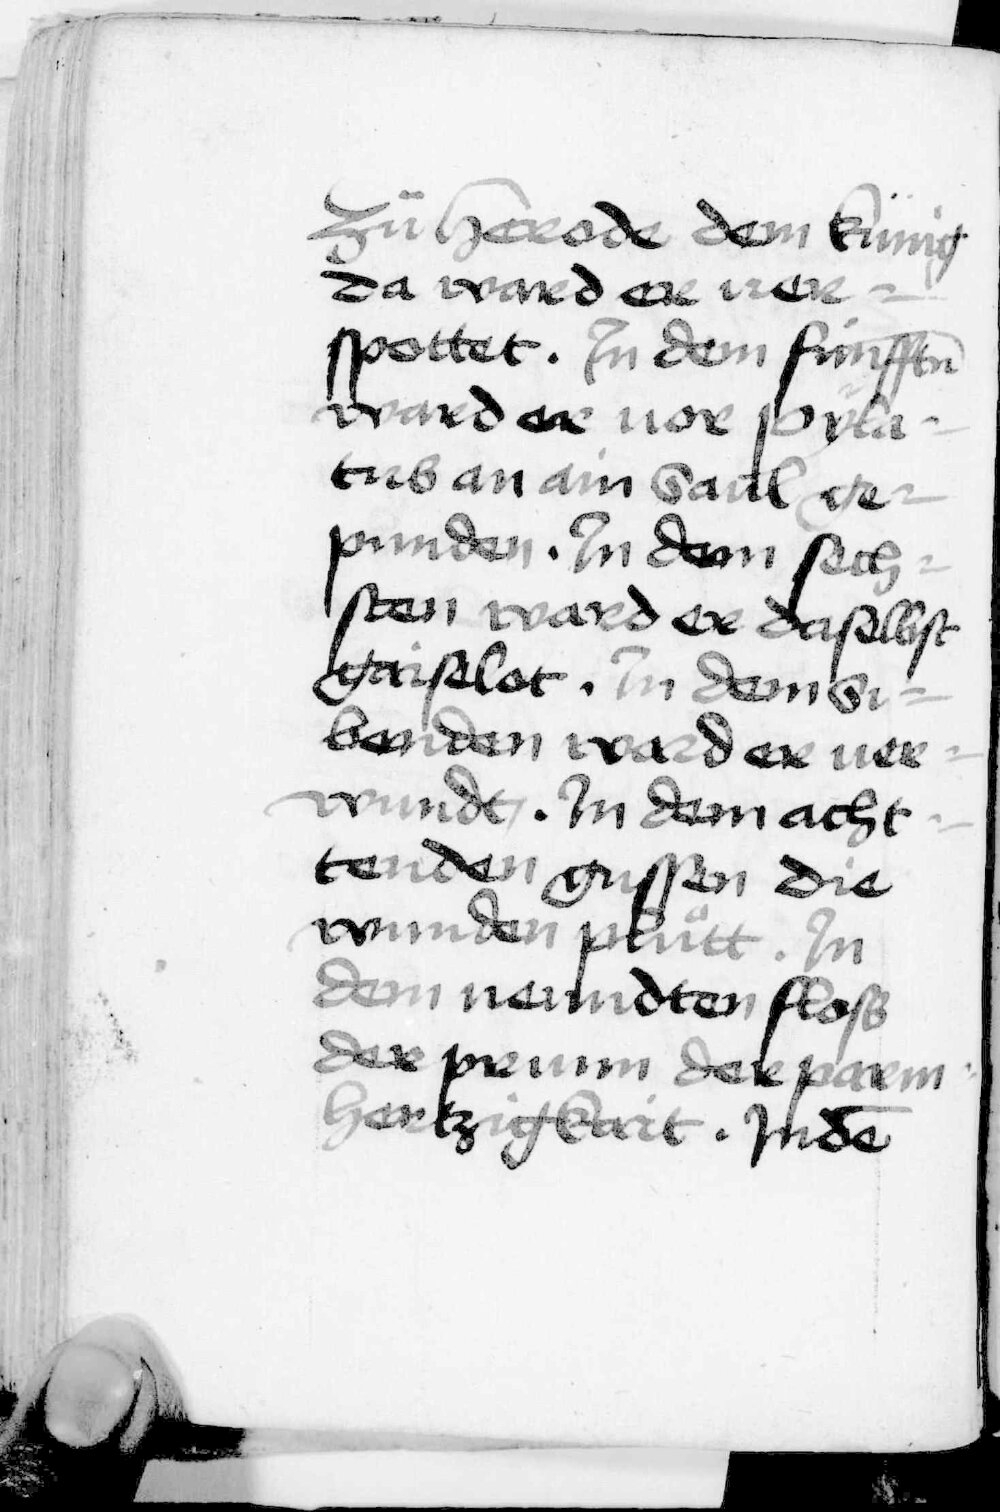 Zů herode dem künig
da ward er ver-
spottet. In dem fünfftn̄
ward er vor pÿla-
tus an ain saul ge-
punden. In dem sech-
sten ward er daselbst
gaiselot. In dem si-
benden ward er ver-
wundt. In dem acht-
tenden gussen die
wunden plůtt. In
dem neundten floss
der prunn der parm-
hertzigkait. In dē